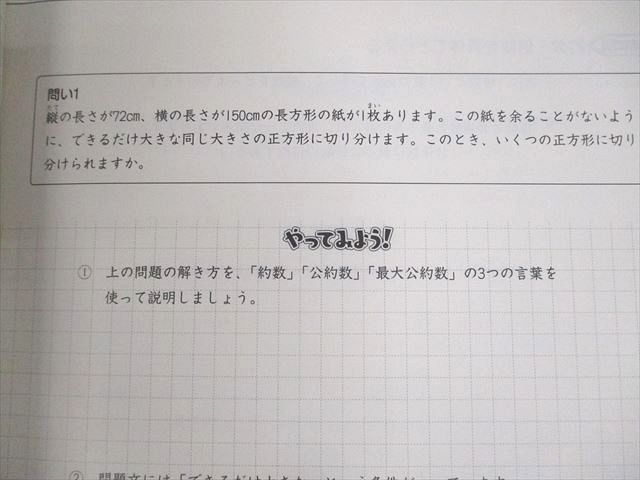 問い1
縦の長さが72cm、横の長さが150cmの長方形の紙が1枚あります。この紙を余ることがないよう
に、できるだけ大きな同じ大きさの正方形に切り分けます。このとき、いくつの正方形に切り
分けられますか。
やってみよう!
① 上の問題の解き方を、「約数」「公約数」「最大公約数」の3つの言葉を
使って説明しましょう。
② 問題文には「できるだけ大きな